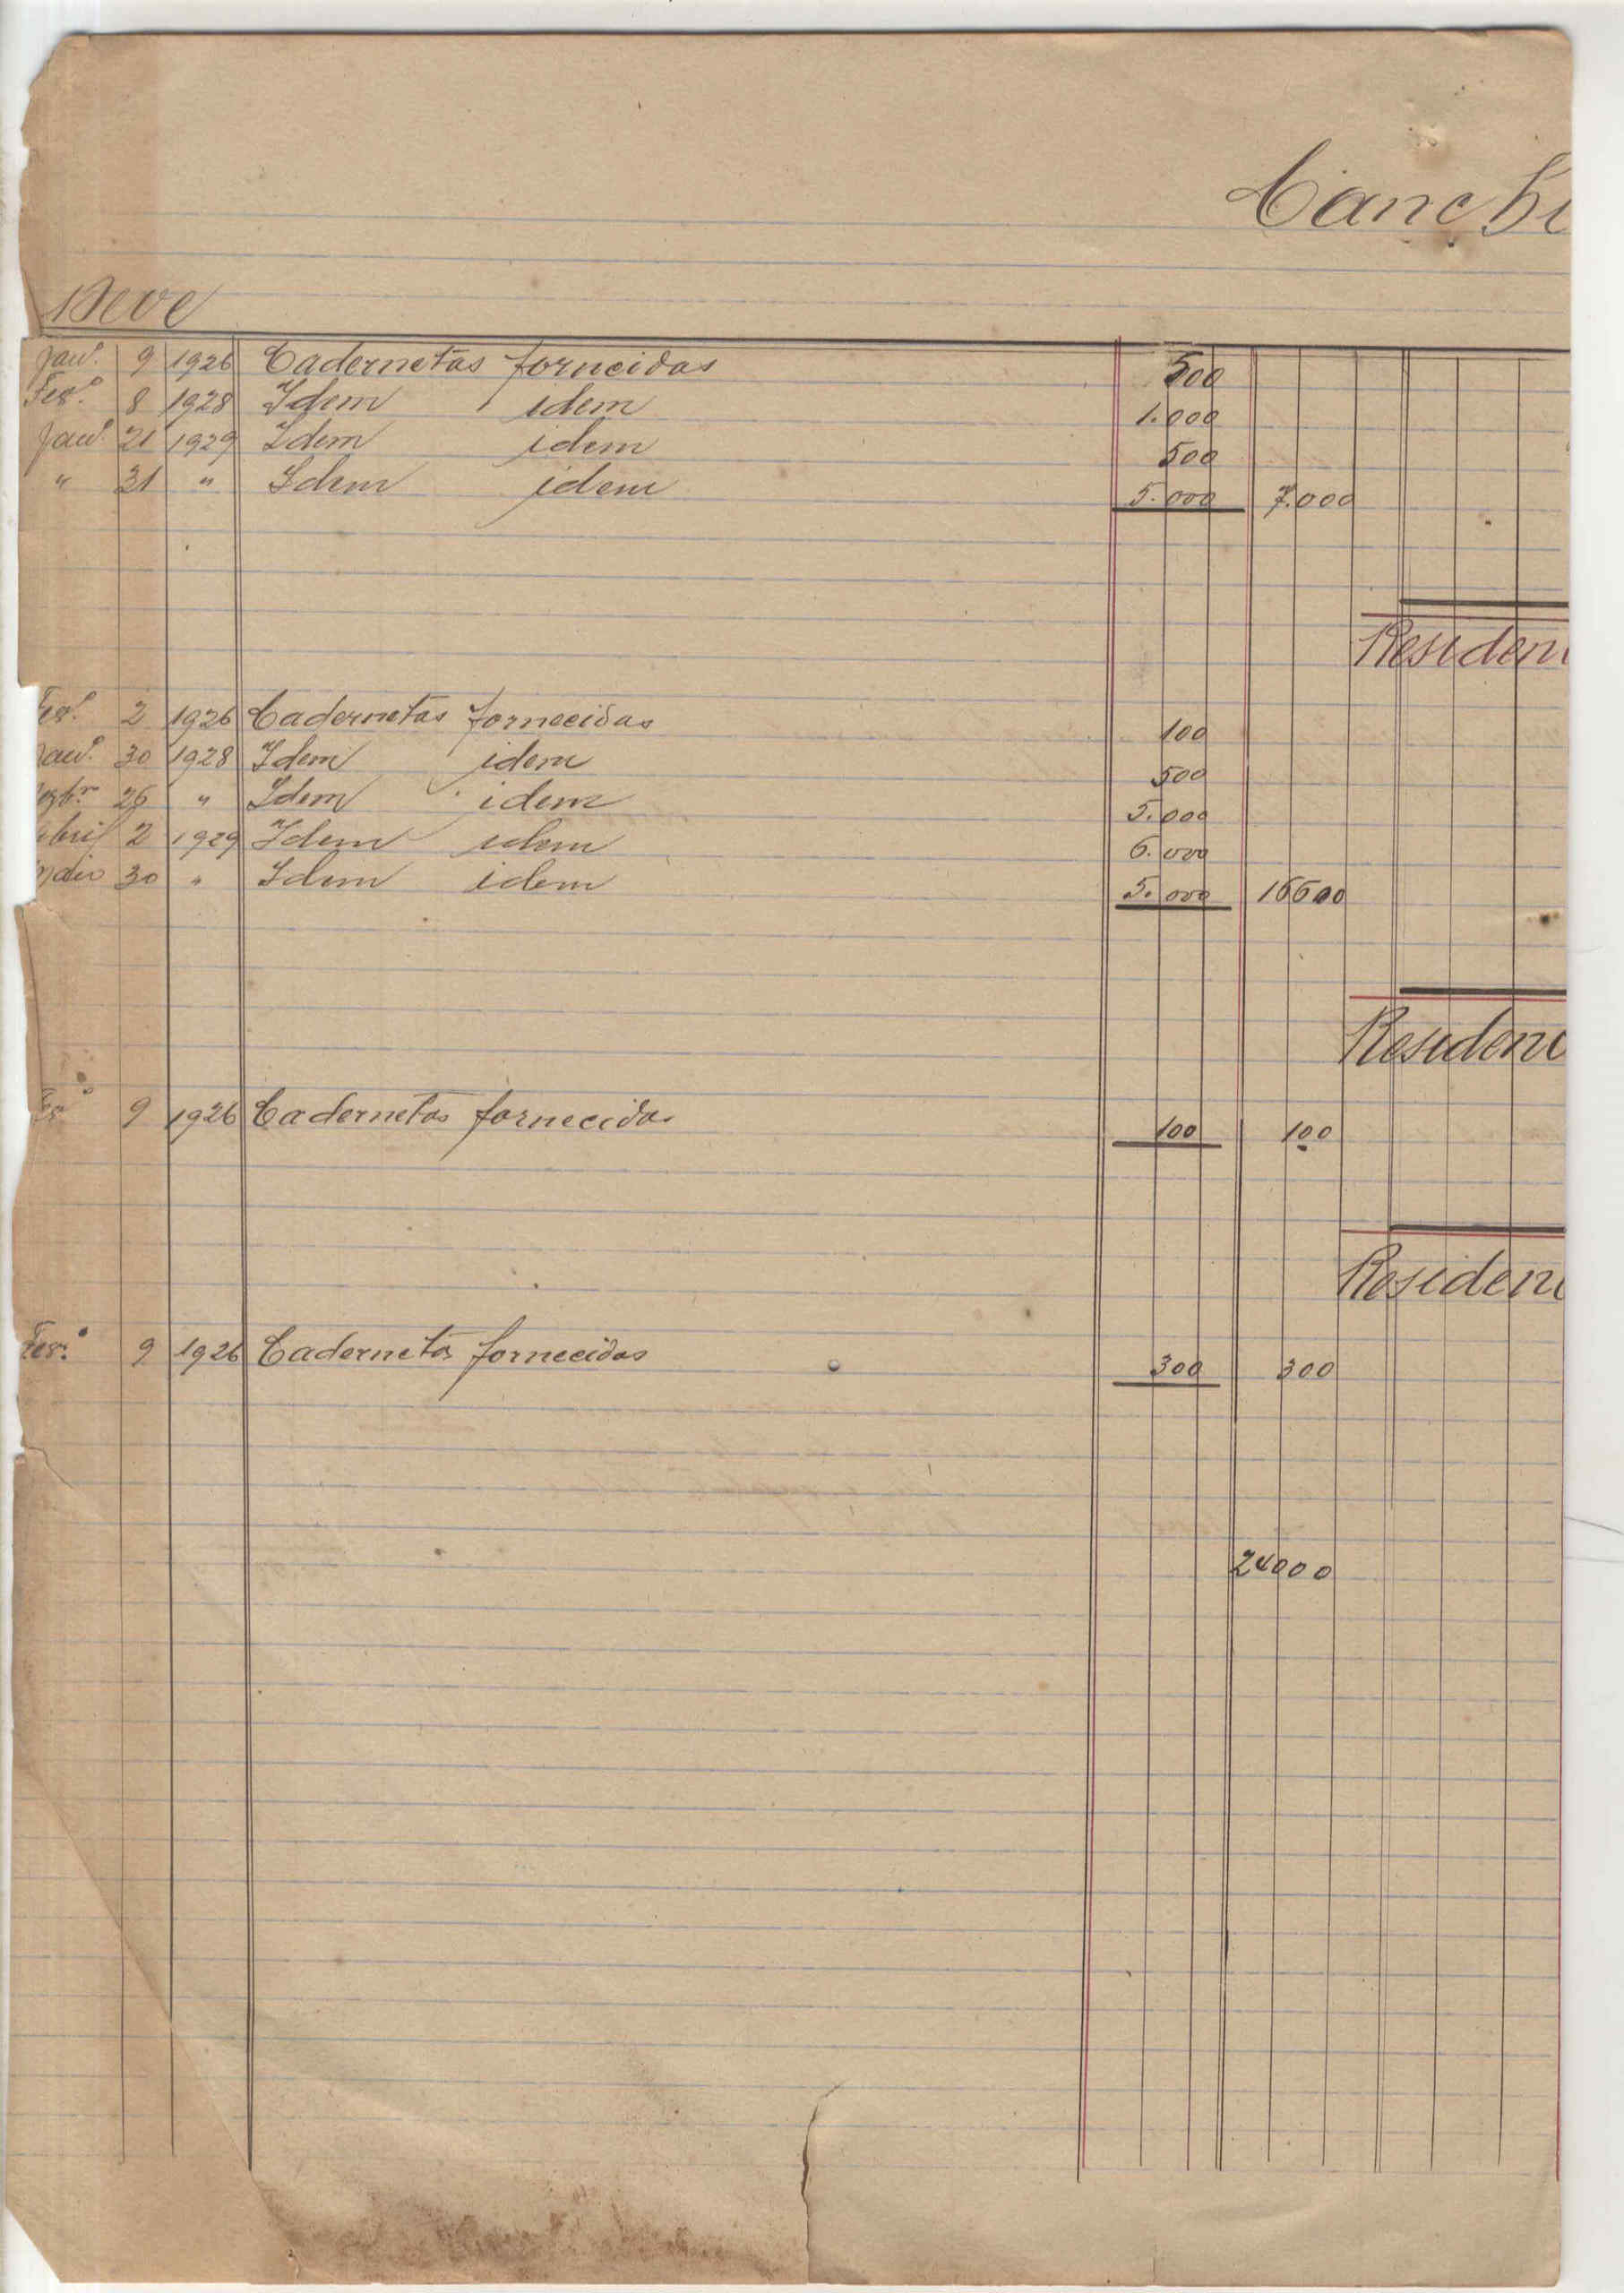 Canchu
Deve
Janº. 9 1926 Cadernetas fornecidas 500
Fevº. 8 1928 Idem idem 1.000
Janº. 21 1929 Idem idem 500
" 31 " Idem idem 5.000 7.000
Residen
Fevº. 2 1926 Cadernetas fornecidas 100
Janº. 30 1928 Idem idem 500
26 " Idem idem 5.000
Abril 2 1929 Idem idem 6.000
Maio 30 " Idem idem 5.000 16600
Residenc
9 1926 Cadernetas fornecidas 100 100
Residenc
Fevº. 9 1926 Cadernetas fornecidas 300 300
24000